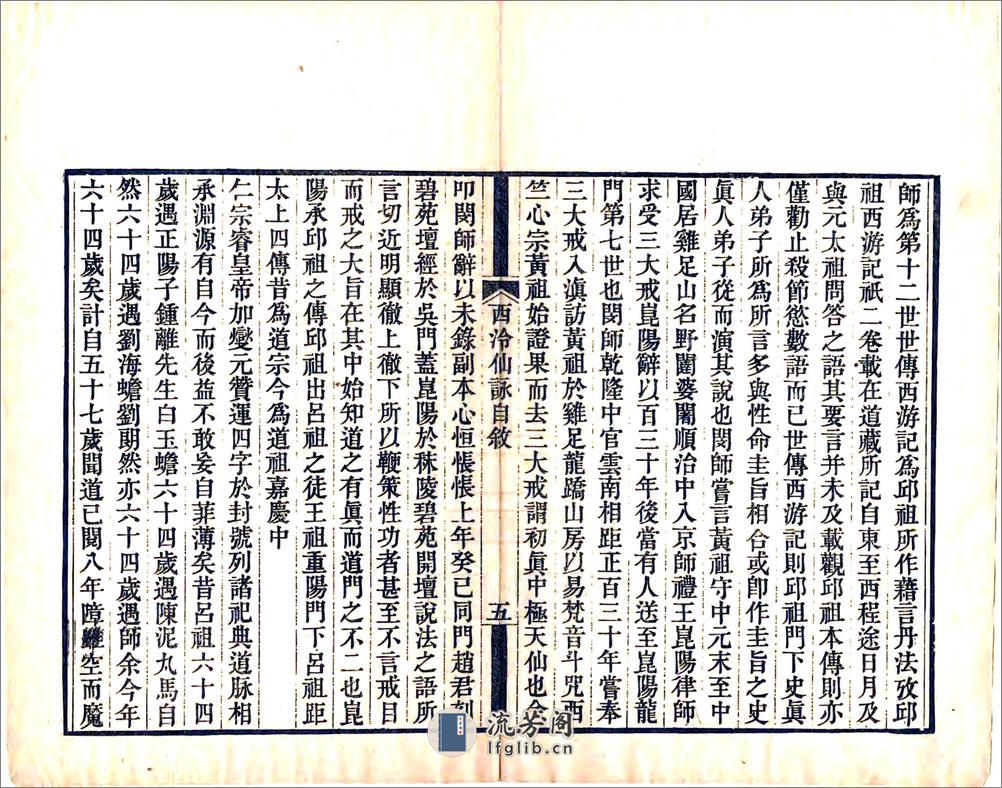 師爲第十二世世傳西游記爲邱祖所作藉言丹法攷邱
祖西游記祇二卷載在道藏所記自東至西程途日月及
與元太祖問答之語其要言并未及載觀邱祖本傳則亦
僅勸止殺節慾數語而已世傳西游記則邱祖門下史眞
人弟子所爲所言多與性命圭旨相合或卽作圭旨之史
眞人弟子從而演其說也閔師嘗言黃祖守中元末至中
國居雞足山名野闥婆闍順治中入京師禮王崑陽律師
求受三大戒崑陽辭以百三十年後當有人送至崑陽龍
門第七世也閔師乾隆中官雲南相距正百三十年嘗奉
三大戒入滇訪黃祖於雞足龍蹻山房以易梵音斗咒西
竺心宗黃祖始證果而去三大戒謂初眞中極天仙也余
西泠仙詠自敘
五
叩閔師辭以未錄副本心恒悵悵上年癸巳同門趙君刻
碧苑壇經於吳門蓋崑陽於秣陵碧苑開壇說法之語所
言切近明顯徹上徹下所以鞭策性功者甚至不言戒目
而戒之大旨在其中始知道之有眞而道門之不二也崑
陽承邱祖之傳邱祖出呂祖之徒王祖重陽門下呂祖距
太上四傳昔爲道宗今爲道祖嘉慶中
仁宗睿皇帝加燮元贊運四字於封號列諸祀典道脉相
承淵源有自今而後益不敢妄自菲薄矣昔呂祖六十四
歲遇正陽子鍾離先生白玉蟾六十四歲遇陳泥丸馬自
然六十四歲遇劉海蟾劉朗然亦六十四歲遇師余今年
六十四歲矣計自五十七歲聞道已閱八年障雖空而魔
流芳阁
lfglib.cn